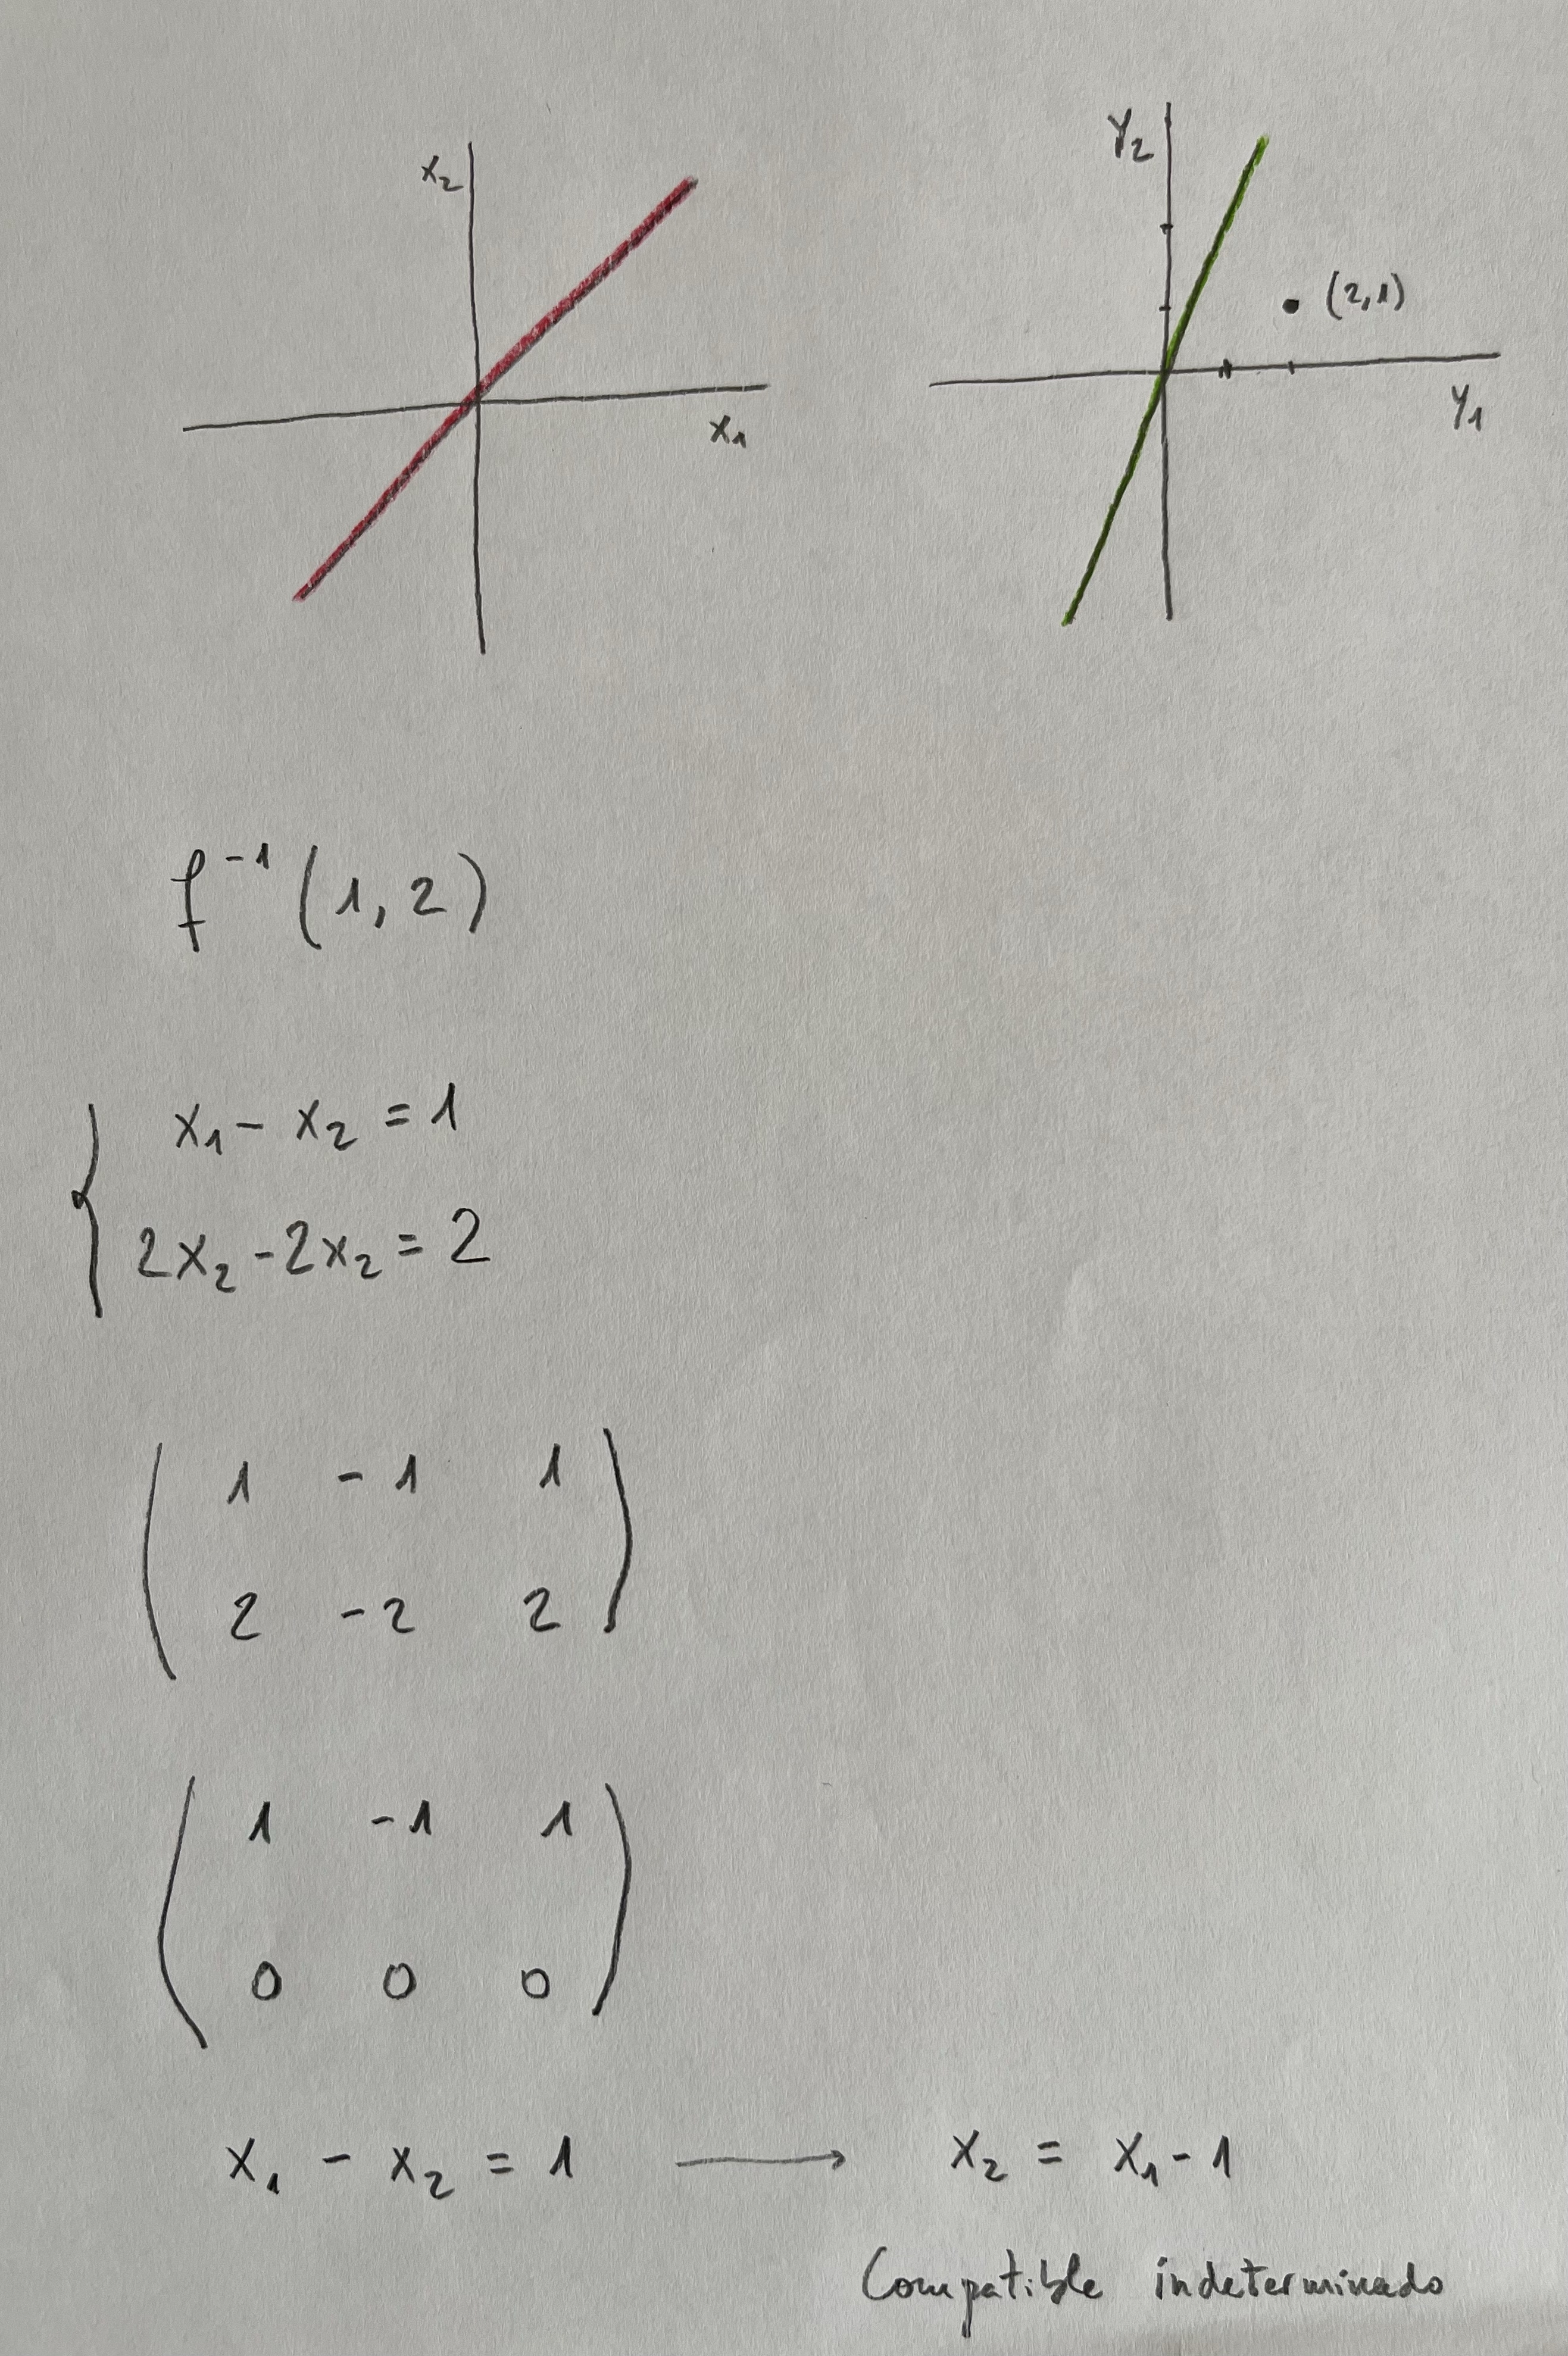 x₂
x₁
Y₂
(2,1)
Y₁
f⁻¹(1,2)
x₁ - x₂ = 1
2x₂ - 2x₂ = 2
1 -1 1
2 -2 2
1 -1 1
0 0 0
x₁ - x₂ = 1 ⟶ x₂ = x₁ - 1
Compatible indeterminado